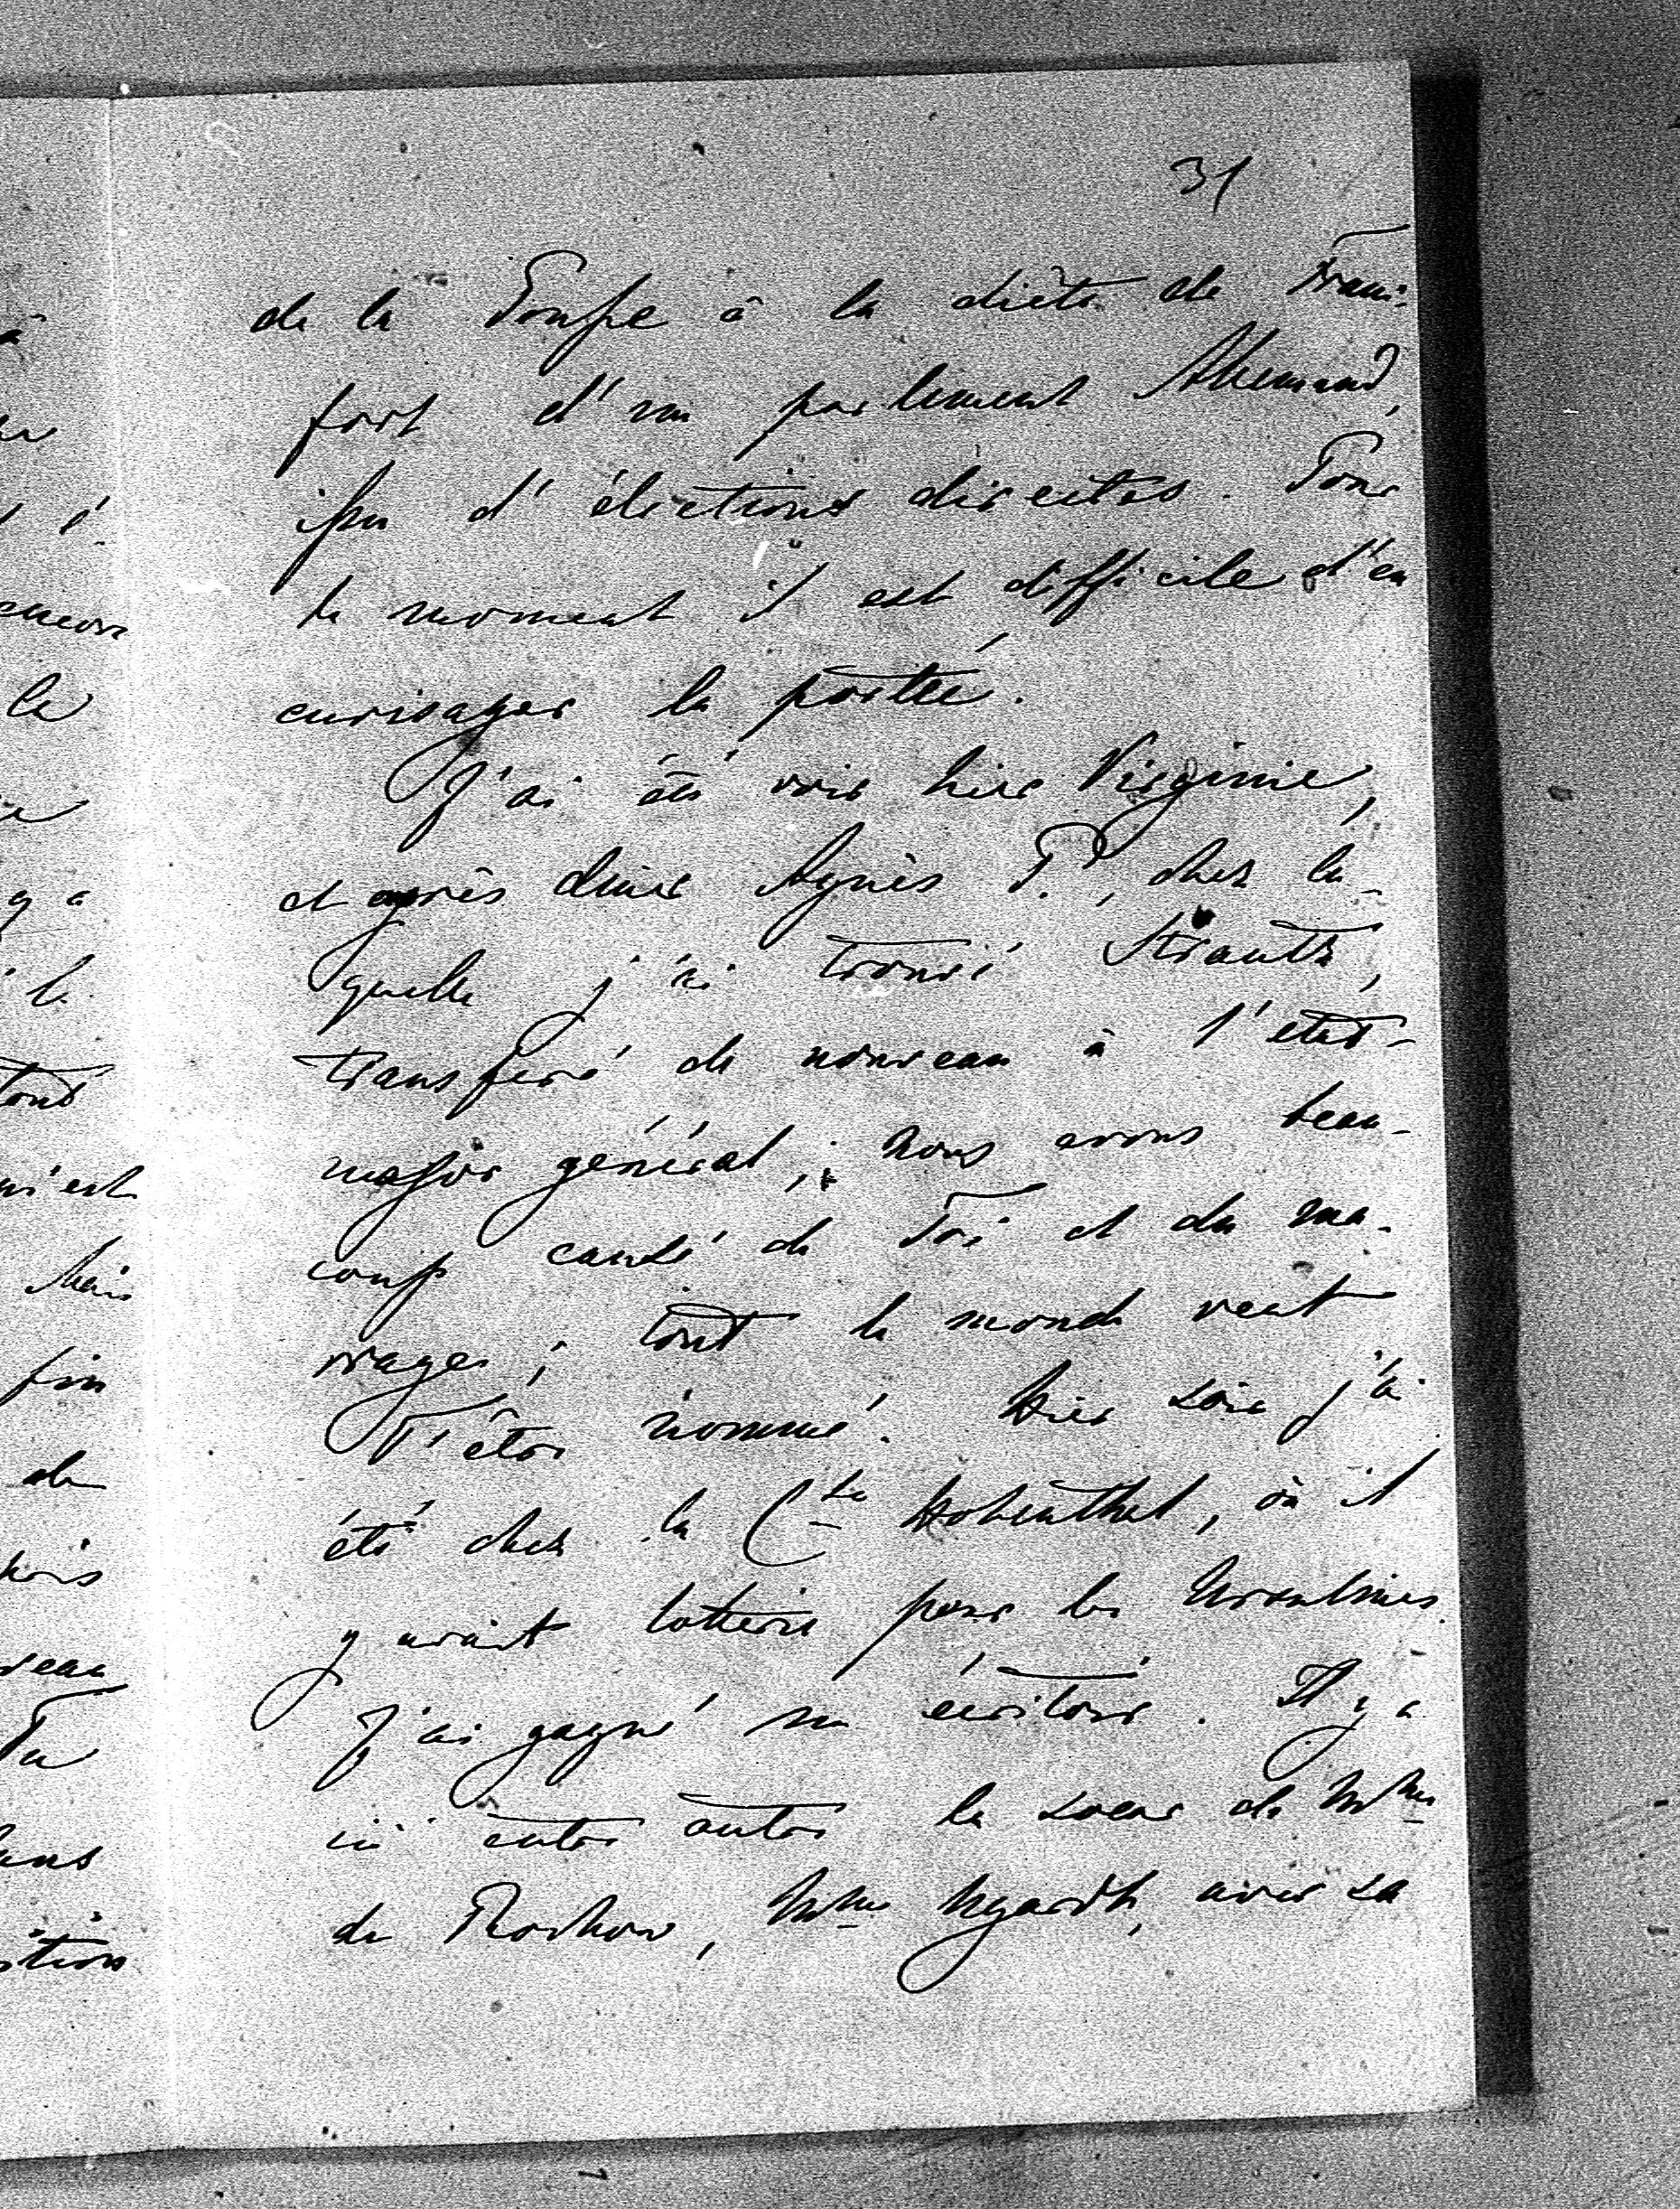 31
de la Poupe à la diète de Franc-
fort d'un parlement Allemand,
issu d'élections directes. Pour
le moment il est difficile d'en
envisager la portée.
J'ai été voir hier Virginie,
et après diner Agnès P., chez la-
quelle j'ai trouvé Strantz,
transferé de nouveau à l'etat-
major général; nous avons beau-
coup causé de Toi et du ma-
riage; tout le monde veut
T'être nommé. Hier soir j'ai
été chez la Ctesse Hohenthal, où il
y avait lotterie pour les Ursulines.
J'ai gagné un écritoir. Il y a
ici entre autre la soeur de Mme
de Rochow, Mme avec sa
à
é
encore
le
y a
tout
n'est
Mais
fin
de
reau
Tu